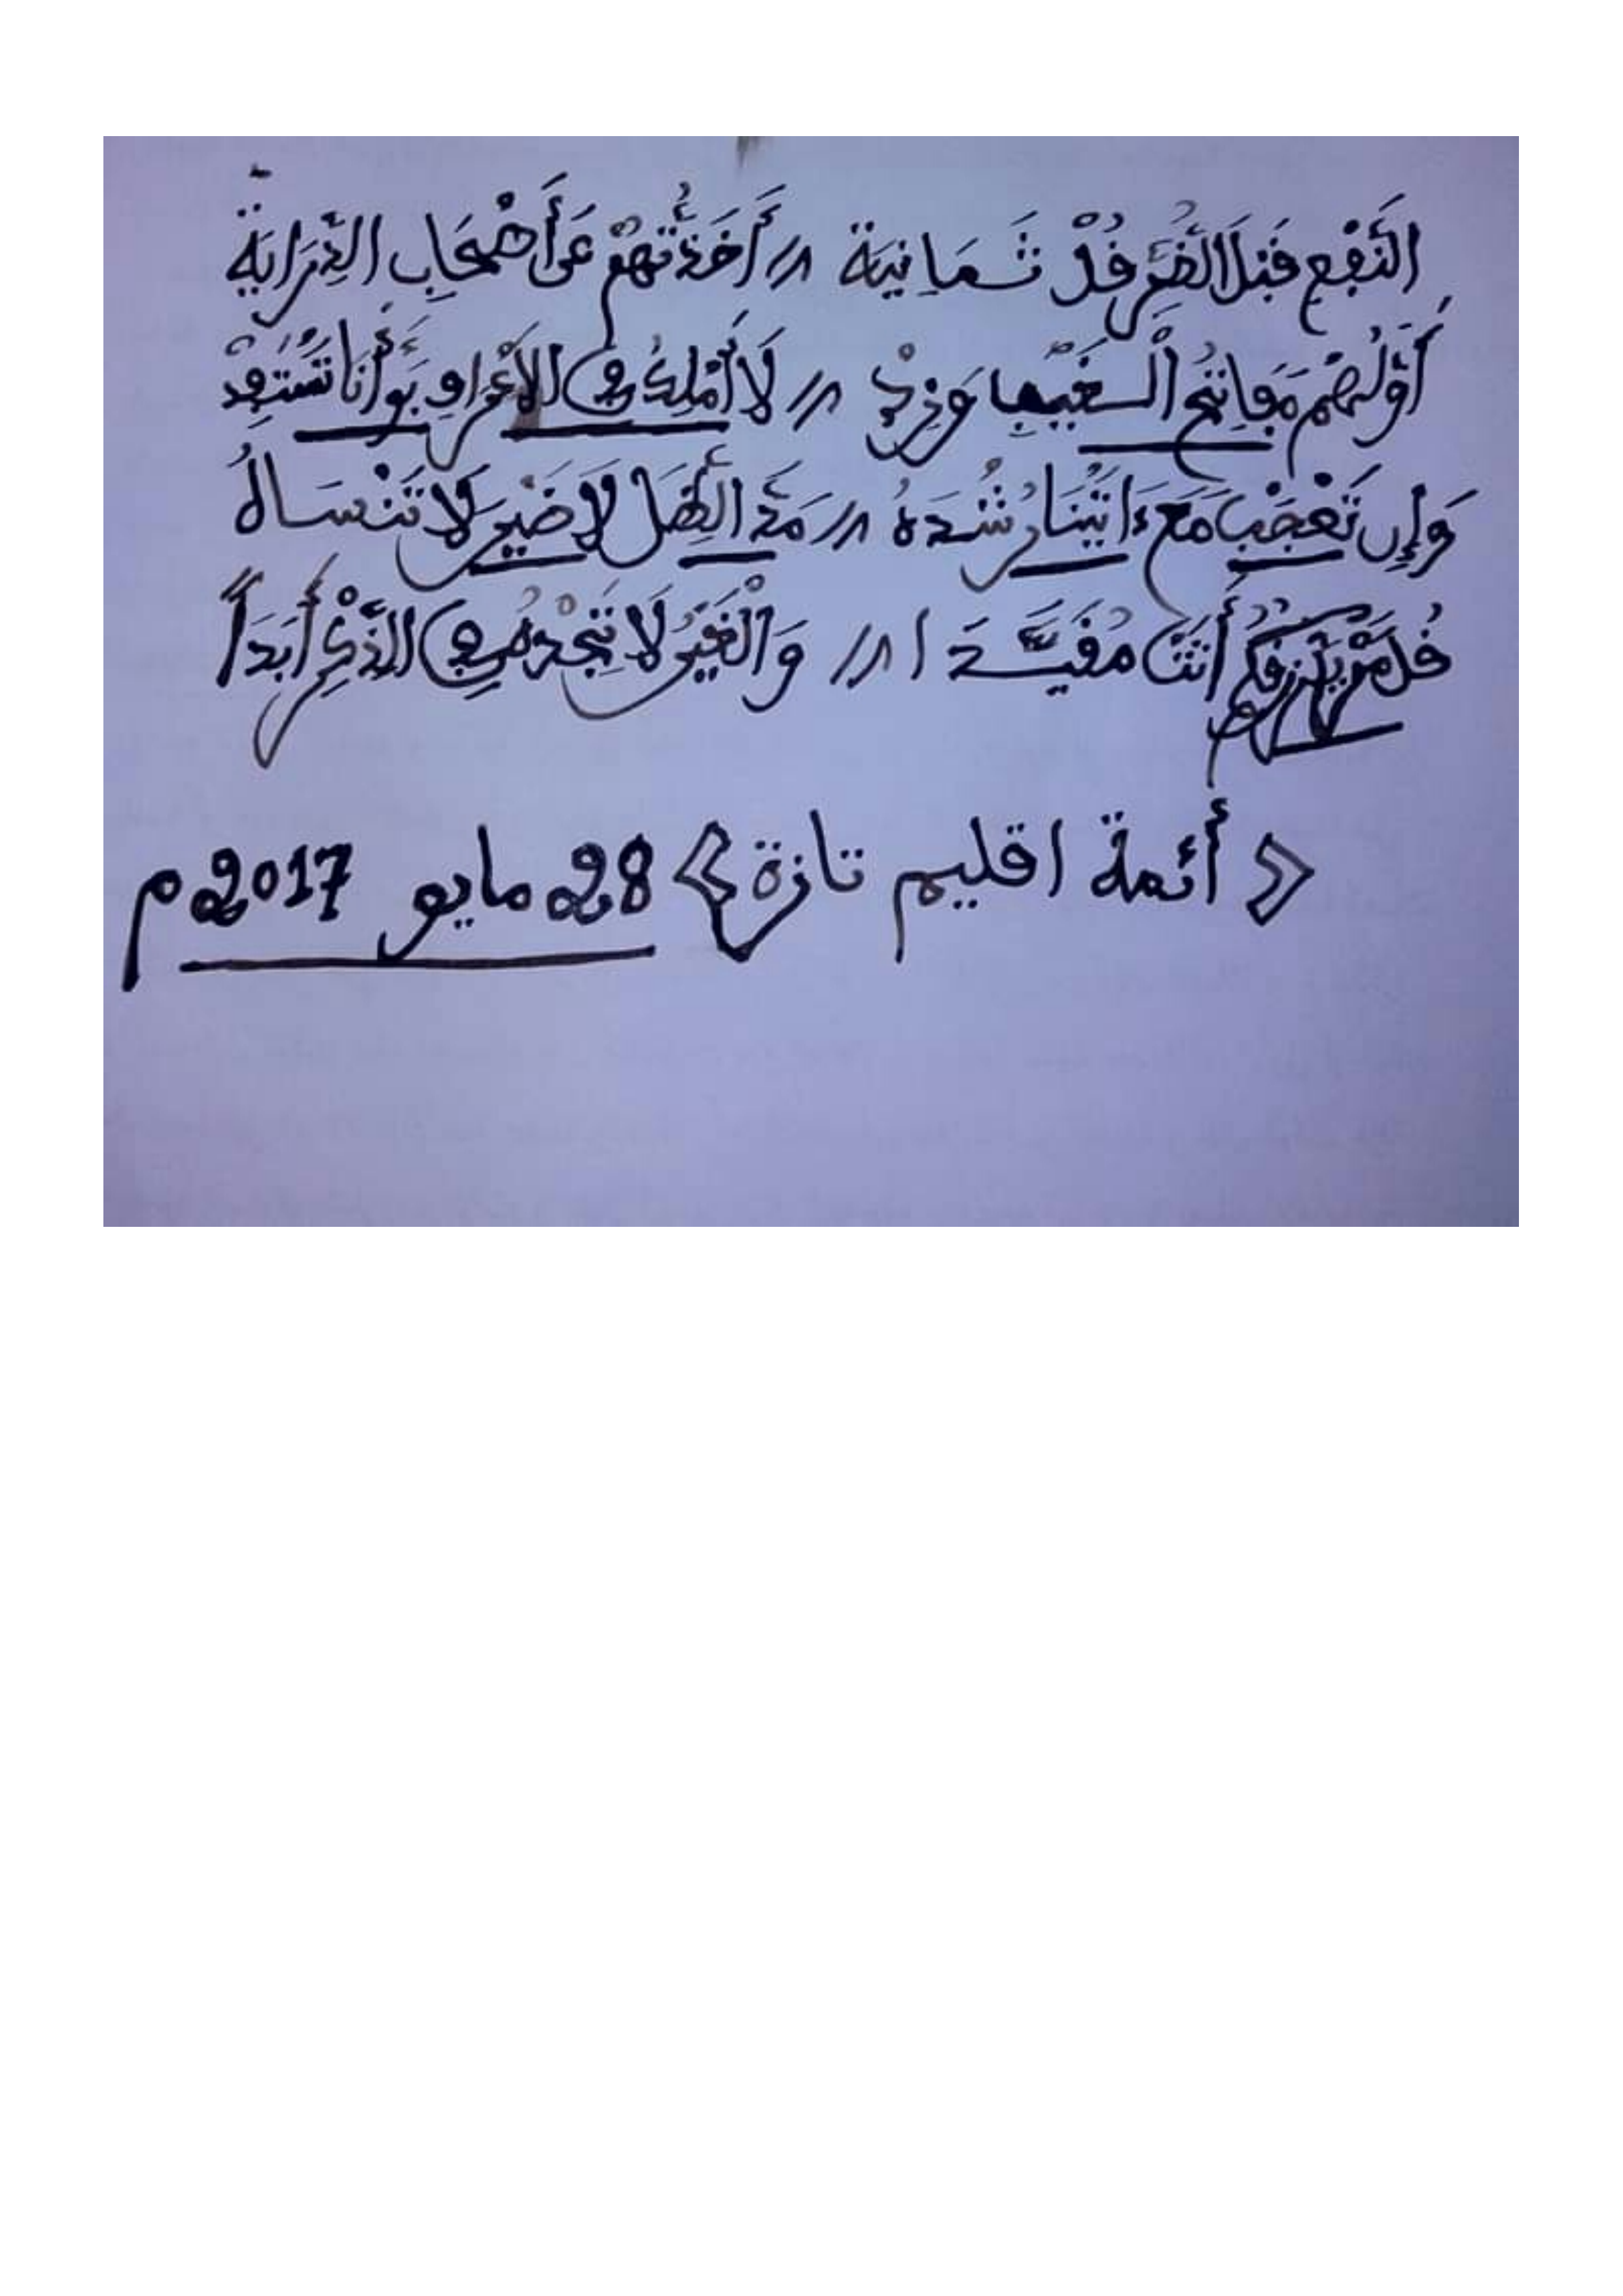 النَّفْعِ قَبْلَ الضُّرِّ قُلْ ثَمَانِيَة // أَخَذْتُهُمْ عَنْ أَصْحَابِ الدِّرَايَة
أَوَّلُهُمْ مَفَاتِحُ الْغَيْبِ وَزِدْ // لَا أَمْلِكُ فِي الْأَعْرَافِ بَوْأَنَا تَسْتَفِدْ
وَإِن تَعْجَبْ مَعَ ءَاتِيْنَا رُشْدَهُ // مَدَّ الظِّلَّ لَا ضَيْرَ لَا تَنْسَاهُ
قُلْ مَنْ يَرْزُقُكُم أَتَتْ مُقَيَّدَا // وَالْغَيْرُ لَا تَجِدْهُ فِي الذِّكْرِ أَبَدَاً
« أئمة اقليم تازة » 28 مايو 2017م